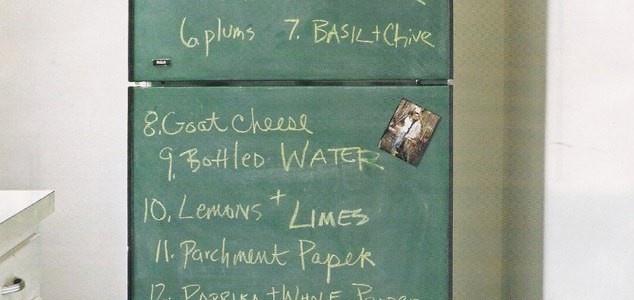 6. plums 7. BASIL + Chive
RCA
8. Goat Cheese
9. Bottled WATER
10. Lemons + LIMES
11. Parchment Paper
12. PAPRIKA + WHOLE